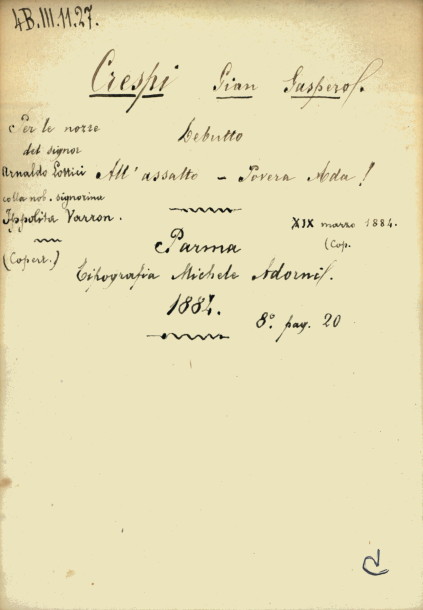 4B.III.11.27.
Crespi Gian Gaspero.
Per le nozze
del signor
Arnaldo Lottici
colla nob. signorina
Ippolita Varron.
(Copert.)
Debutto
All' assalto - Povera Ada!
XIX marzo 1884.
(Cop.
Parma
Tipografia Michele Adorni.
1884.
8º. pag. 20